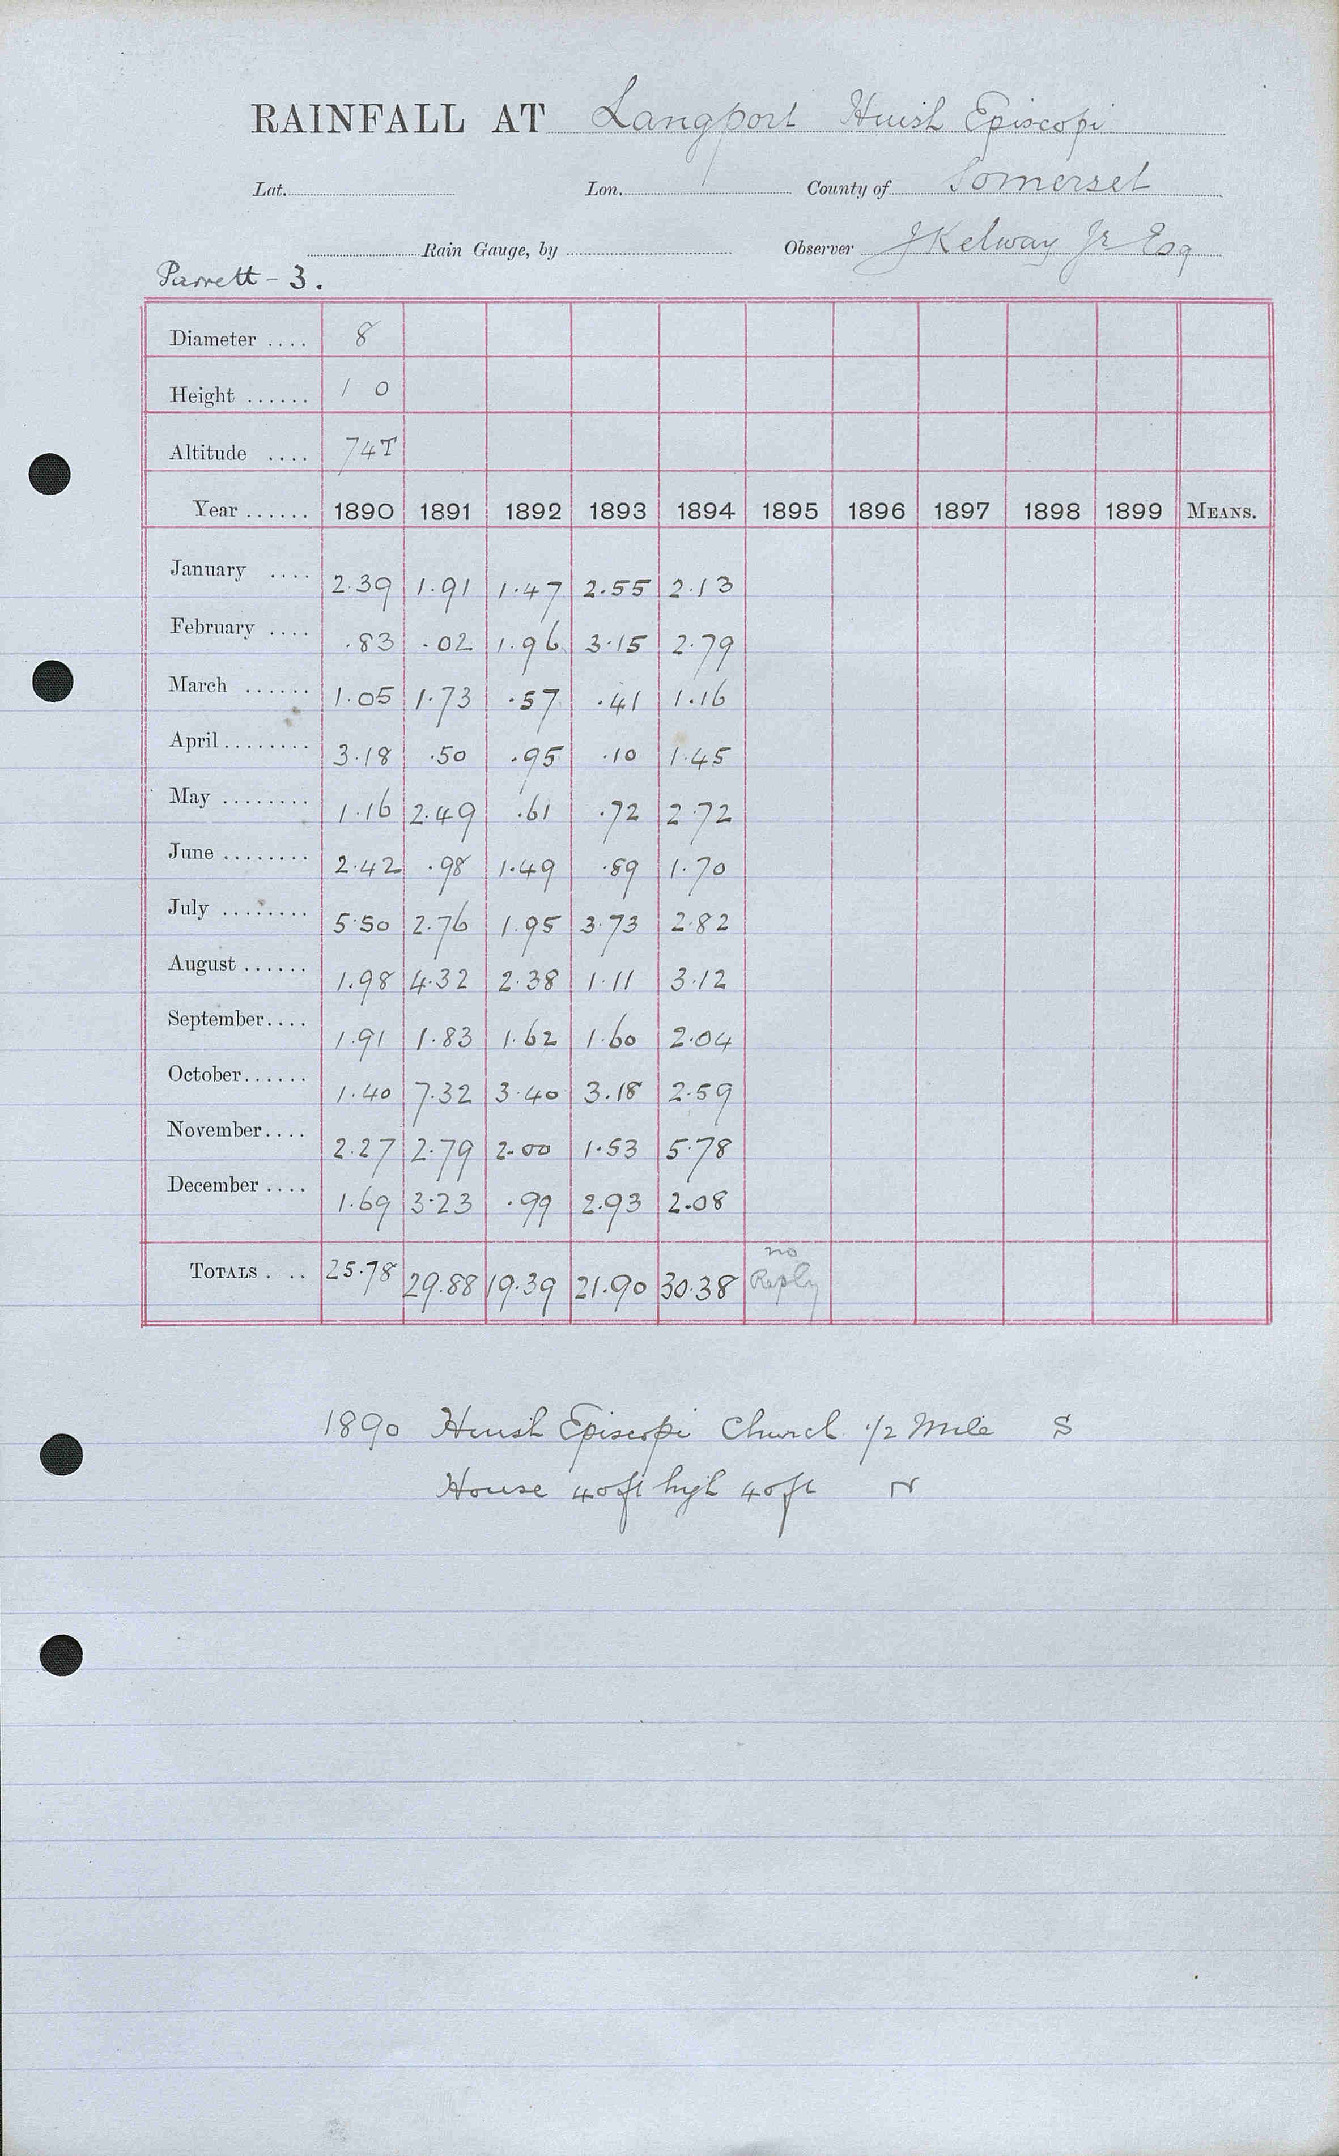 RAINFALL AT Langport Huish Episcopi
Lat. Lon. County of Somerset
Rain Gauge, by Observer J Kelway Jr Esq
Parrett - 3.
Diameter .... 8
Height ...... 1 0
Altitude .... 74T
Year ...... 1890 1891 1892 1893 1894 1895 1896 1897 1898 1899 MEANS.
January .... 2.39 1.91 1.47 2.55 2.13
February .... .83 .02 1.96 3.15 2.79
March ...... 1.05 1.73 .57 .41 1.16
April ........ 3.18 .50 .95 .10 1.45
May ........ 1.16 2.49 .61 .72 2.72
June ........ 2.42 .98 1.49 .89 1.70
July ........ 5.50 2.76 1.95 3.73 2.82
August ...... 1.98 4.32 2.38 1.11 3.12
September.... 1.91 1.83 1.62 1.60 2.04
October...... 1.40 7.32 3.40 3.18 2.59
November.... 2.27 2.79 2.00 1.53 5.78
December .... 1.69 3.23 .99 2.93 2.08
TOTALS . .. 25.78 29.88 19.39 21.90 30.38 no Reply
1890 Huish Episcopi Church 1/2 Mile S
House 40ft high 40ft N